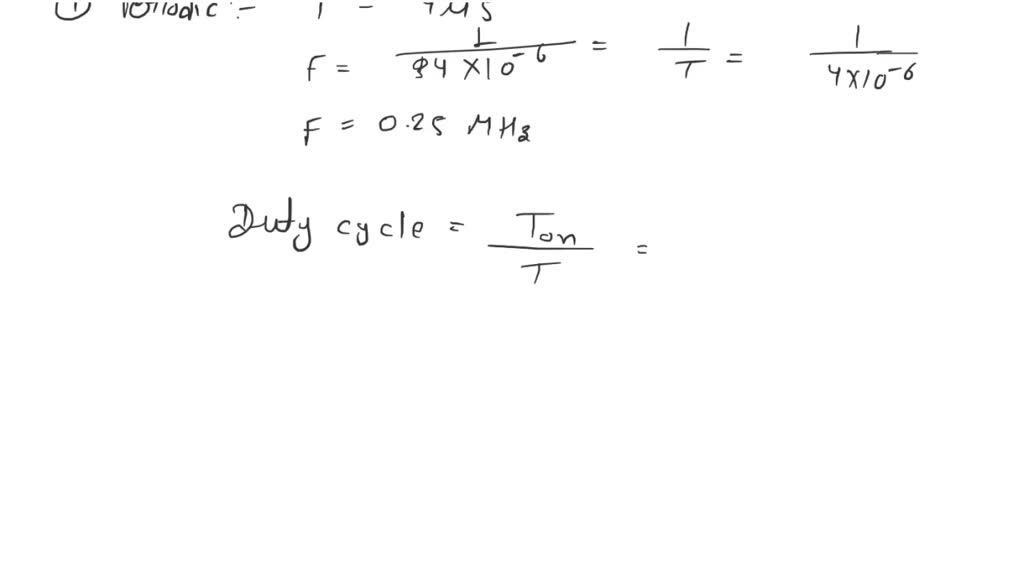 ① Periodic :- T = 4μs
F = 1 / 94 × 10⁻⁶ = 1 / T = 1 / 4×10⁻⁶
F = 0.25 MHz
Duty cycle = Ton / T =